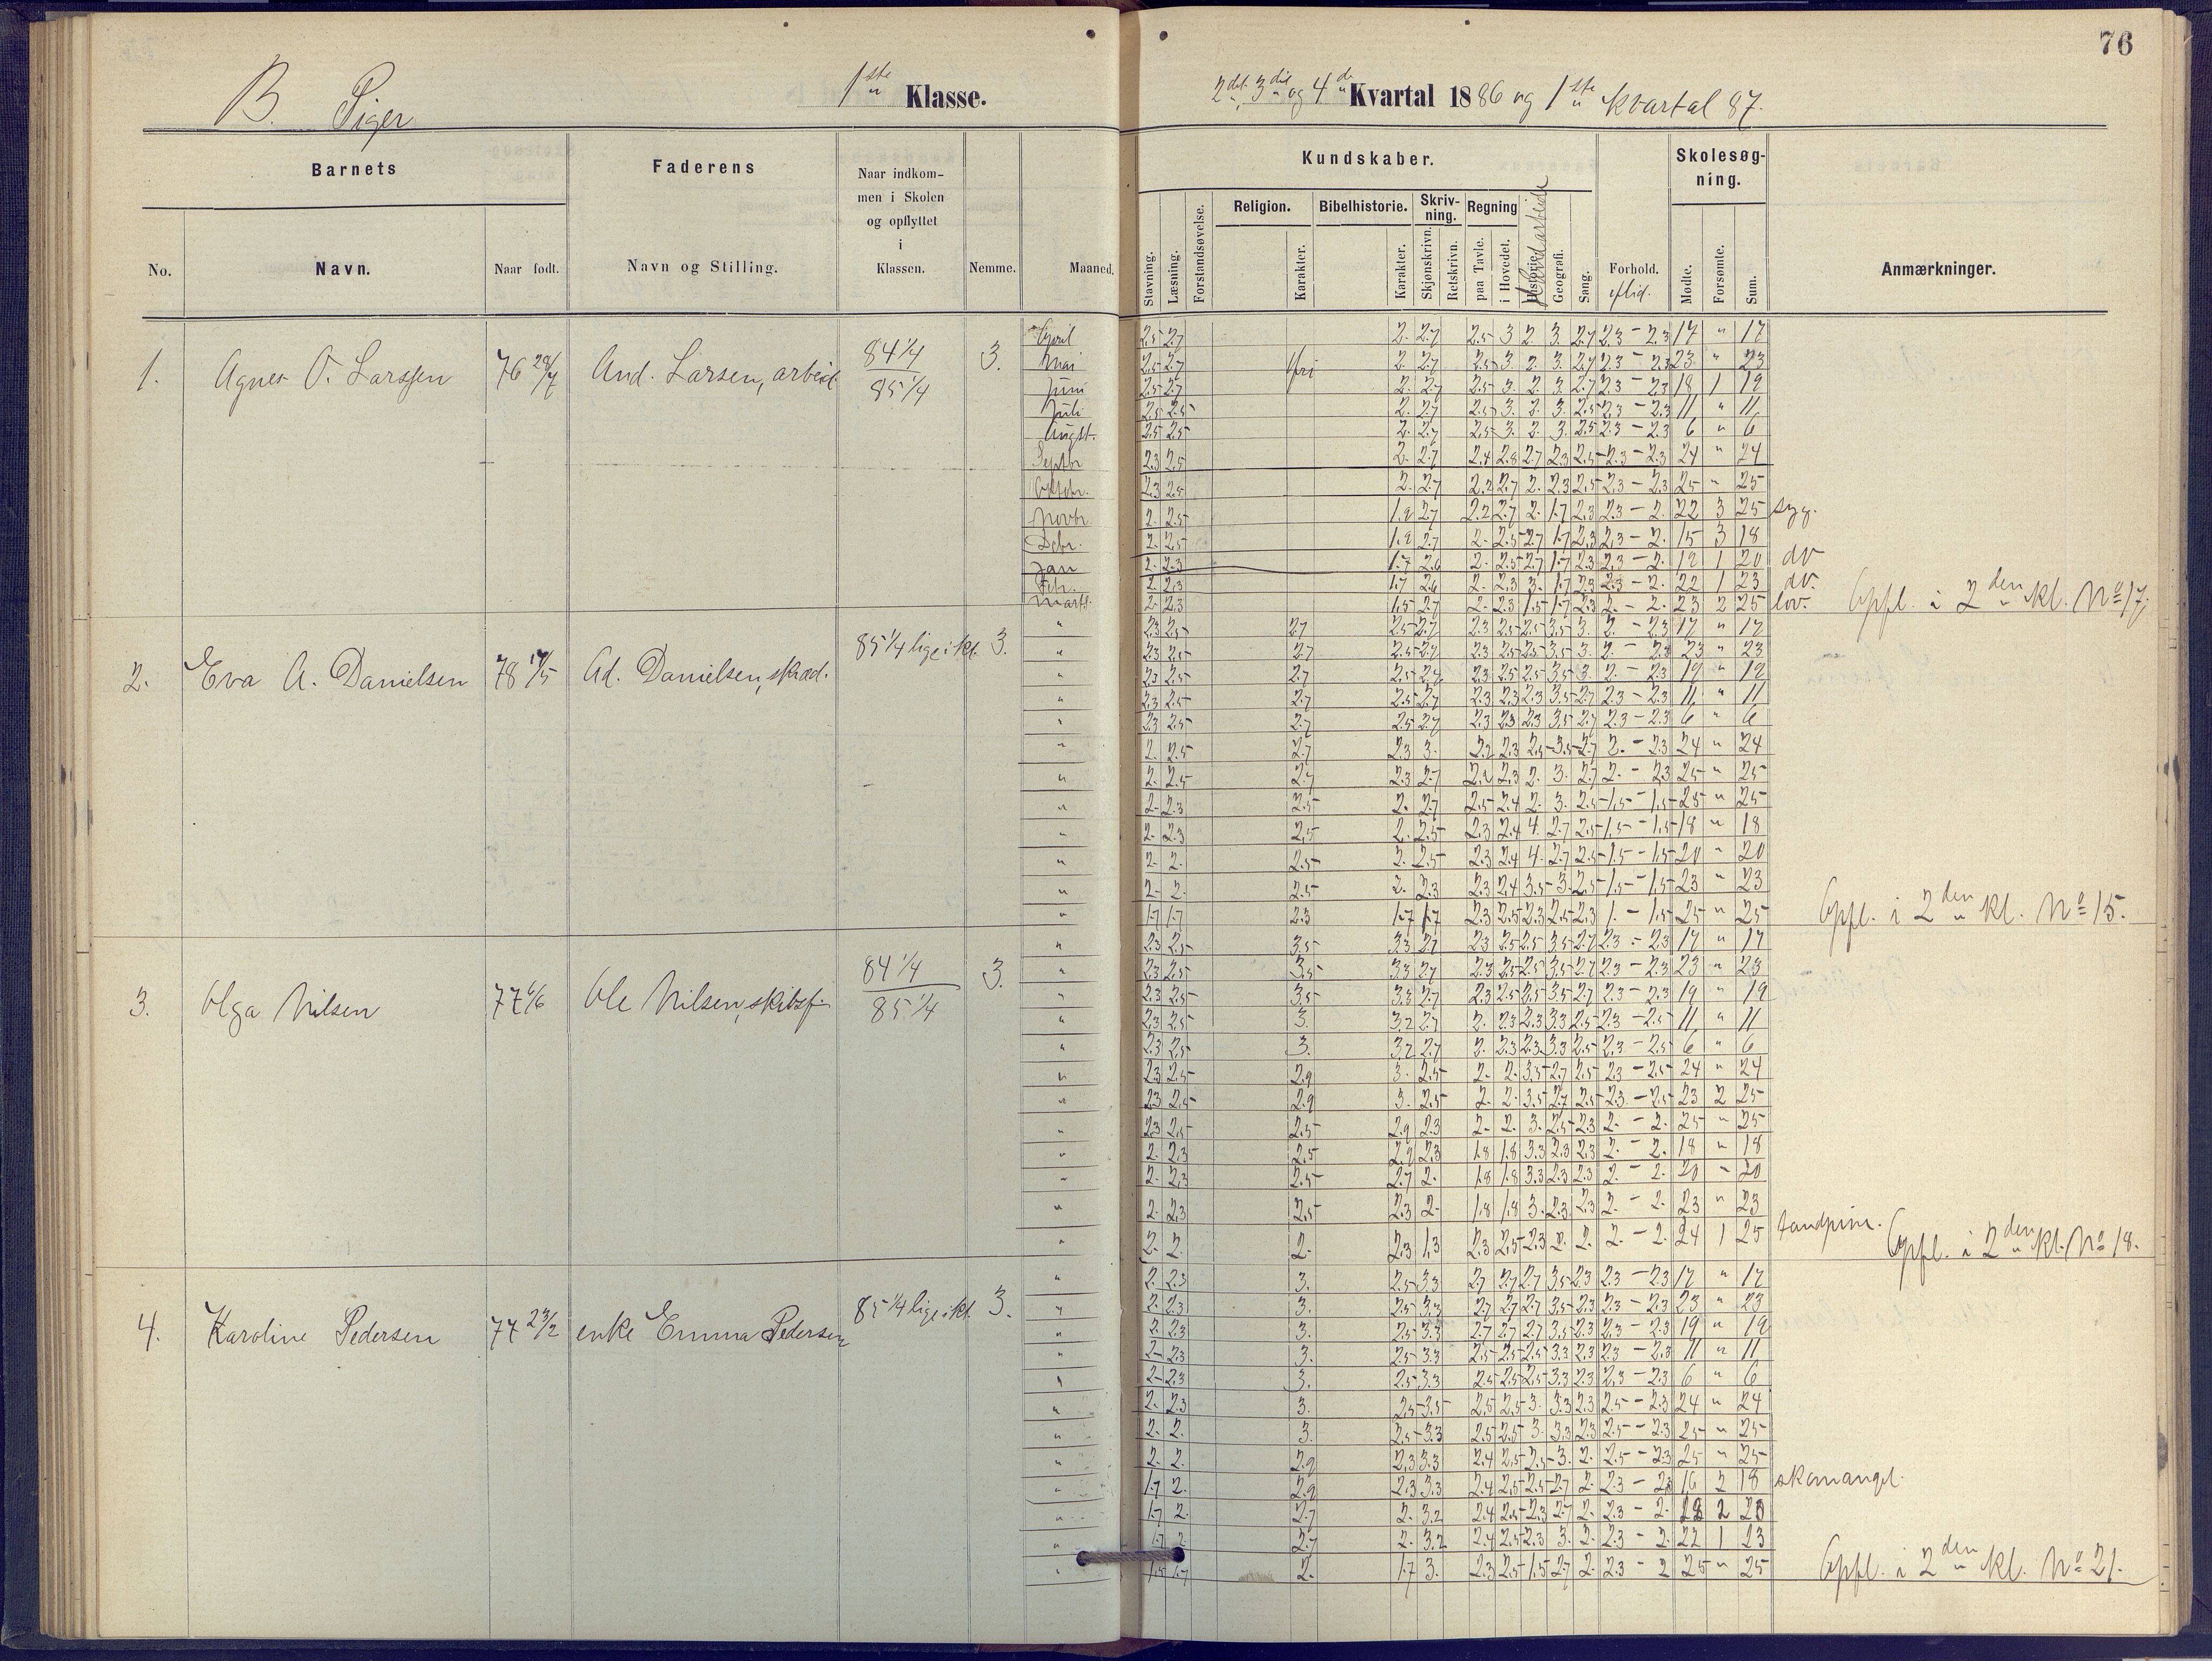 76
B. Piger
1ste Klasse.
2det, 3die og 4de Kvartal 1886 og 1ste Kvartal 87.
Barnets
Faderens
Naar indkom-
men i Skolen
og opflyttet
i
Klassen.
Nemme.
Maaned.
Kundskaber.
Skolesøg-
ning.
No.
Navn.
Naar født.
Navn og Stilling.
Stavning.
Læsning.
Forstandsøvelse.
Religion.
Karakter.
Bibelhistorie.
Karakter.
Skriv-
ning.
Skjønskrivn.
Retskrivn.
Regning
paa Tavle.
i Hovedet.
Historie.
Haandarbeide
Geografi.
Sang.
Forhold.
Flid.
Mødte.
Forsømte.
Sum.
Anmærkninger.
1. Agnes O. Larsen 76 And. Larsen, arbeid. 84 1/4 85 1/4 3.
April 2.5 2.7 2. 2.7 2.5 3 2. 3. 2.7 2.3 – 2.3 17 " 17
Mai 2.5 2.7 fri 2. 2.7 2.5 3. 2. 3. 2.7 2.3 – 2.3 23 " 23
Juni 2.5 2.7 2. 2.7 2.5 3. 2. 3. 2.7 2.3 – 2.3 18 1 19
Juli 2.5 2.5 2. 2.7 2.5 3. 2. 3. 2.5 2.3 – 2.3 11 " 11
Augst. 2.5 2.5 2. 2.7 2.5 3. 2. 3. 2.5 2.3 – 2.3 6 " 6
Septbr 2.3 2.5 2. 2.7 2.4 2.8 2.7 2.3 2.5 2.3 – 2.3 24 " 24
Oktobr. 2.3 2.5 2. 2.7 2.2 2.7 2. 2.3 2.5 2.3 – 2.3 25 " 25
Novbr. 2. 2.5 1.9 2.7 2.2 2.7 2. 1.7 2.3 2.3 – 2. 22 3 25 syg.
Debr. 2. 2.5 1.9 2.7 2. 2.5 2.7 1.7 2.3 2.3 – 2. 15 3 18
Jan 2. 2.3 1.7 2.6 2. 2.5 2.7 1.7 2.3 2.3 – 2. 19 1 20 do
Febr. 2. 2.3 1.7 2.6 2. 2.3 3. 1.7 2.3 2.3 – 2. 22 1 23 do.
Marts. 2. 2.3 1.5 2.7 2. 2.3 1.5 1.7 2.3 2. – 2. 23 2 25 lov. Opfl. i 2den kl. No 17.
2. Eva A. Danielsen 78 17/5 Ad. Danielsen, skræd. 85 1/4 lige i kl. 3.
" 2.3 2.5 2.7 2.5 2.7 2.3 2.5 2.5 3.5 3. 2. – 2.3 17 " 17
" 2.3 2.5 2.7 2.5 2.7 2.3 2.5 2.5 3.5 3. 2. – 2.3 23 " 23
" 2.3 2.5 2.7 2.5 2.7 2.3 2.5 2.5 3.5 3. 2. – 2.3 19 " 19
" 2.3 2.5 2.7 2.5 2.7 2.3 2.3 2.3 3.5 2.7 2.3 – 2.3 11 " 11
" 2.3 2.5 2.7 2.5 2.7 2.3 2.3 2.3 3.5 2.7 2.3 – 2.3 6 " 6
" 2. 2.5 2.7 2.3 3. 2.2 2.3 2.5 3.5 2.7 2. – 2.3 24 " 24
" 2. 2.5 2.7 2.3 2.7 2.2 2.3 2. 3. 2.7 2. – 2.3 25 " 25
" 2. 2.3 2.5 2. 2.7 2.5 2.4 2. 3. 2.5 1.5 – 1.5 25 " 25
" 2. 2.3 2.5 2. 2.5 2.3 2.4 4. 2.7 2.5 1.5 – 1.5 18 " 18
" 2. 2. 2.5 2. 2.5 2.3 2.4 4. 2.7 2.5 1.5 – 1.5 20 " 20
" 2. 2. 2.5 2. 2.3 2.3 2.4 3.5 3. 2.5 1.5 – 1.5 23 " 23
" 1.7 1.7 2.3 1.7 1.7 2.3 2.5 2.3 2.5 2.3 1. – 1.5 25 " 25 Opfl. i 2den kl. No 15.
3. Olga Nilsen 77 Ole Nilsen, skibsf. 84 1/4 85 1/4 3.
" 2.3 2.5 3.5 3.3 2.7 2.3 2.5 2.5 3.5 2.7 2.3 – 2.3 17 " 17
" 2.3 2.5 3.5 3.3 2.7 2.3 2.5 2.5 3.5 2.7 2.3 – 2.3 23 " 23
" 2.3 2.5 3.5 3.3 2.7 2.3 2.5 2.5 3.5 2.7 2.3 – 2.3 19 " 19
" 2.3 2.5 3. 3.2 2.7 2. 2.3 2.3 3.3 2.5 2.3 – 2.5 11 " 11
" 2.3 2.5 3. 3.2 2.7 2. 2.3 2.3 3.3 2.5 2.3 – 2.5 6 " 6
" 2.3 2.5 2.9 3. 2.5 2. 2. 3.5 2.7 2.5 2.3 – 2.5 24 " 24
" 2.3 2.5 2.9 3. 2.5 2. 2. 3.5 2.7 2.5 2.3 – 2.5 23 2 25
" 2.3 2.5 2.5 2.9 2.3 2. 2. 3. 2.5 2.3 2. – 2. 25 " 25
" 2. 2.3 2.5 2.9 2.3 1.8 1.8 3.3 2.3 2.3 2. – 2. 18 " 18
" 2. 2.3 2.5 2.7 2. 1.8 1.8 3.3 2.3 2.3 2. – 2. 20 " 20
" 2. 2.3 2.5 2.3 2. 1.8 1.8 3. 2.3 2.3 2. – 2. 23 " 23
" 2. 2. 2. 2.3 1.3 2.3 2.5 2.3 2. 2. 2. – 2. 24 1 25 tandpine. Opfl. i 2den kl. No 18.
4. Karoline Pedersen 77 23/2 enke Emma Pedersen 85 1/4 lige i kl. 3.
" 2. 2.3 3. 2.5 3.3 2.7 2.7 2.7 3.5 2.3 2.3 – 2.3 17 " 17
" 2. 2.3 3. 2.5 3.3 2.7 2.7 2.7 3.5 2.3 2.3 – 2.3 23 " 23
" 2. 2.3 3. 2.5 3.3 2.7 2.7 2.7 3.5 2.3 2.3 – 2.3 19 " 19
" 2. 2.3 3. 2.5 3.3 2.5 2.5 2.5 3.3 2.3 2.3 – 2.3 11 " 11
" 2. 2.3 3. 2.5 3.3 2.5 2.5 2.5 3.3 2.3 2.3 – 2.3 6 " 6
" 2. 2.3 3. 2.5 3.5 2.5 2.5 3. 3.3 2.3 2.5 – 2.3 24 " 24
" 2. 2. 3. 2.5 3.3 2.5 2.5 3. 3.3 2.3 2.5 – 2.3 25 " 25
" 2. 2. 2.9 2.3 3.3 2.4 2.5 2.5 3. 2. 2.5 – 2.3 25 " 25
" 1.7 2. 2.9 2.3 3.3 2.4 2.5 2.5 2.7 2. 2.3 – 16 2 18 skomangel.
" 1.7 2. 2.7 2. 3.2 2.4 2.5 2.3 2.7 2. 2.3 – 2. 18 2 20
" 1.7 2 2.7 2. 3.2 2.4 2.5 2.3 3. 2. 2.3 – 2. 22 1 23
" 1.5 1.7 2. 1.7 3. 2.3 2.5 1.5 2.7 2. 2.3 – 2 25 " 25 Opfl. i 2den kl. No 21.